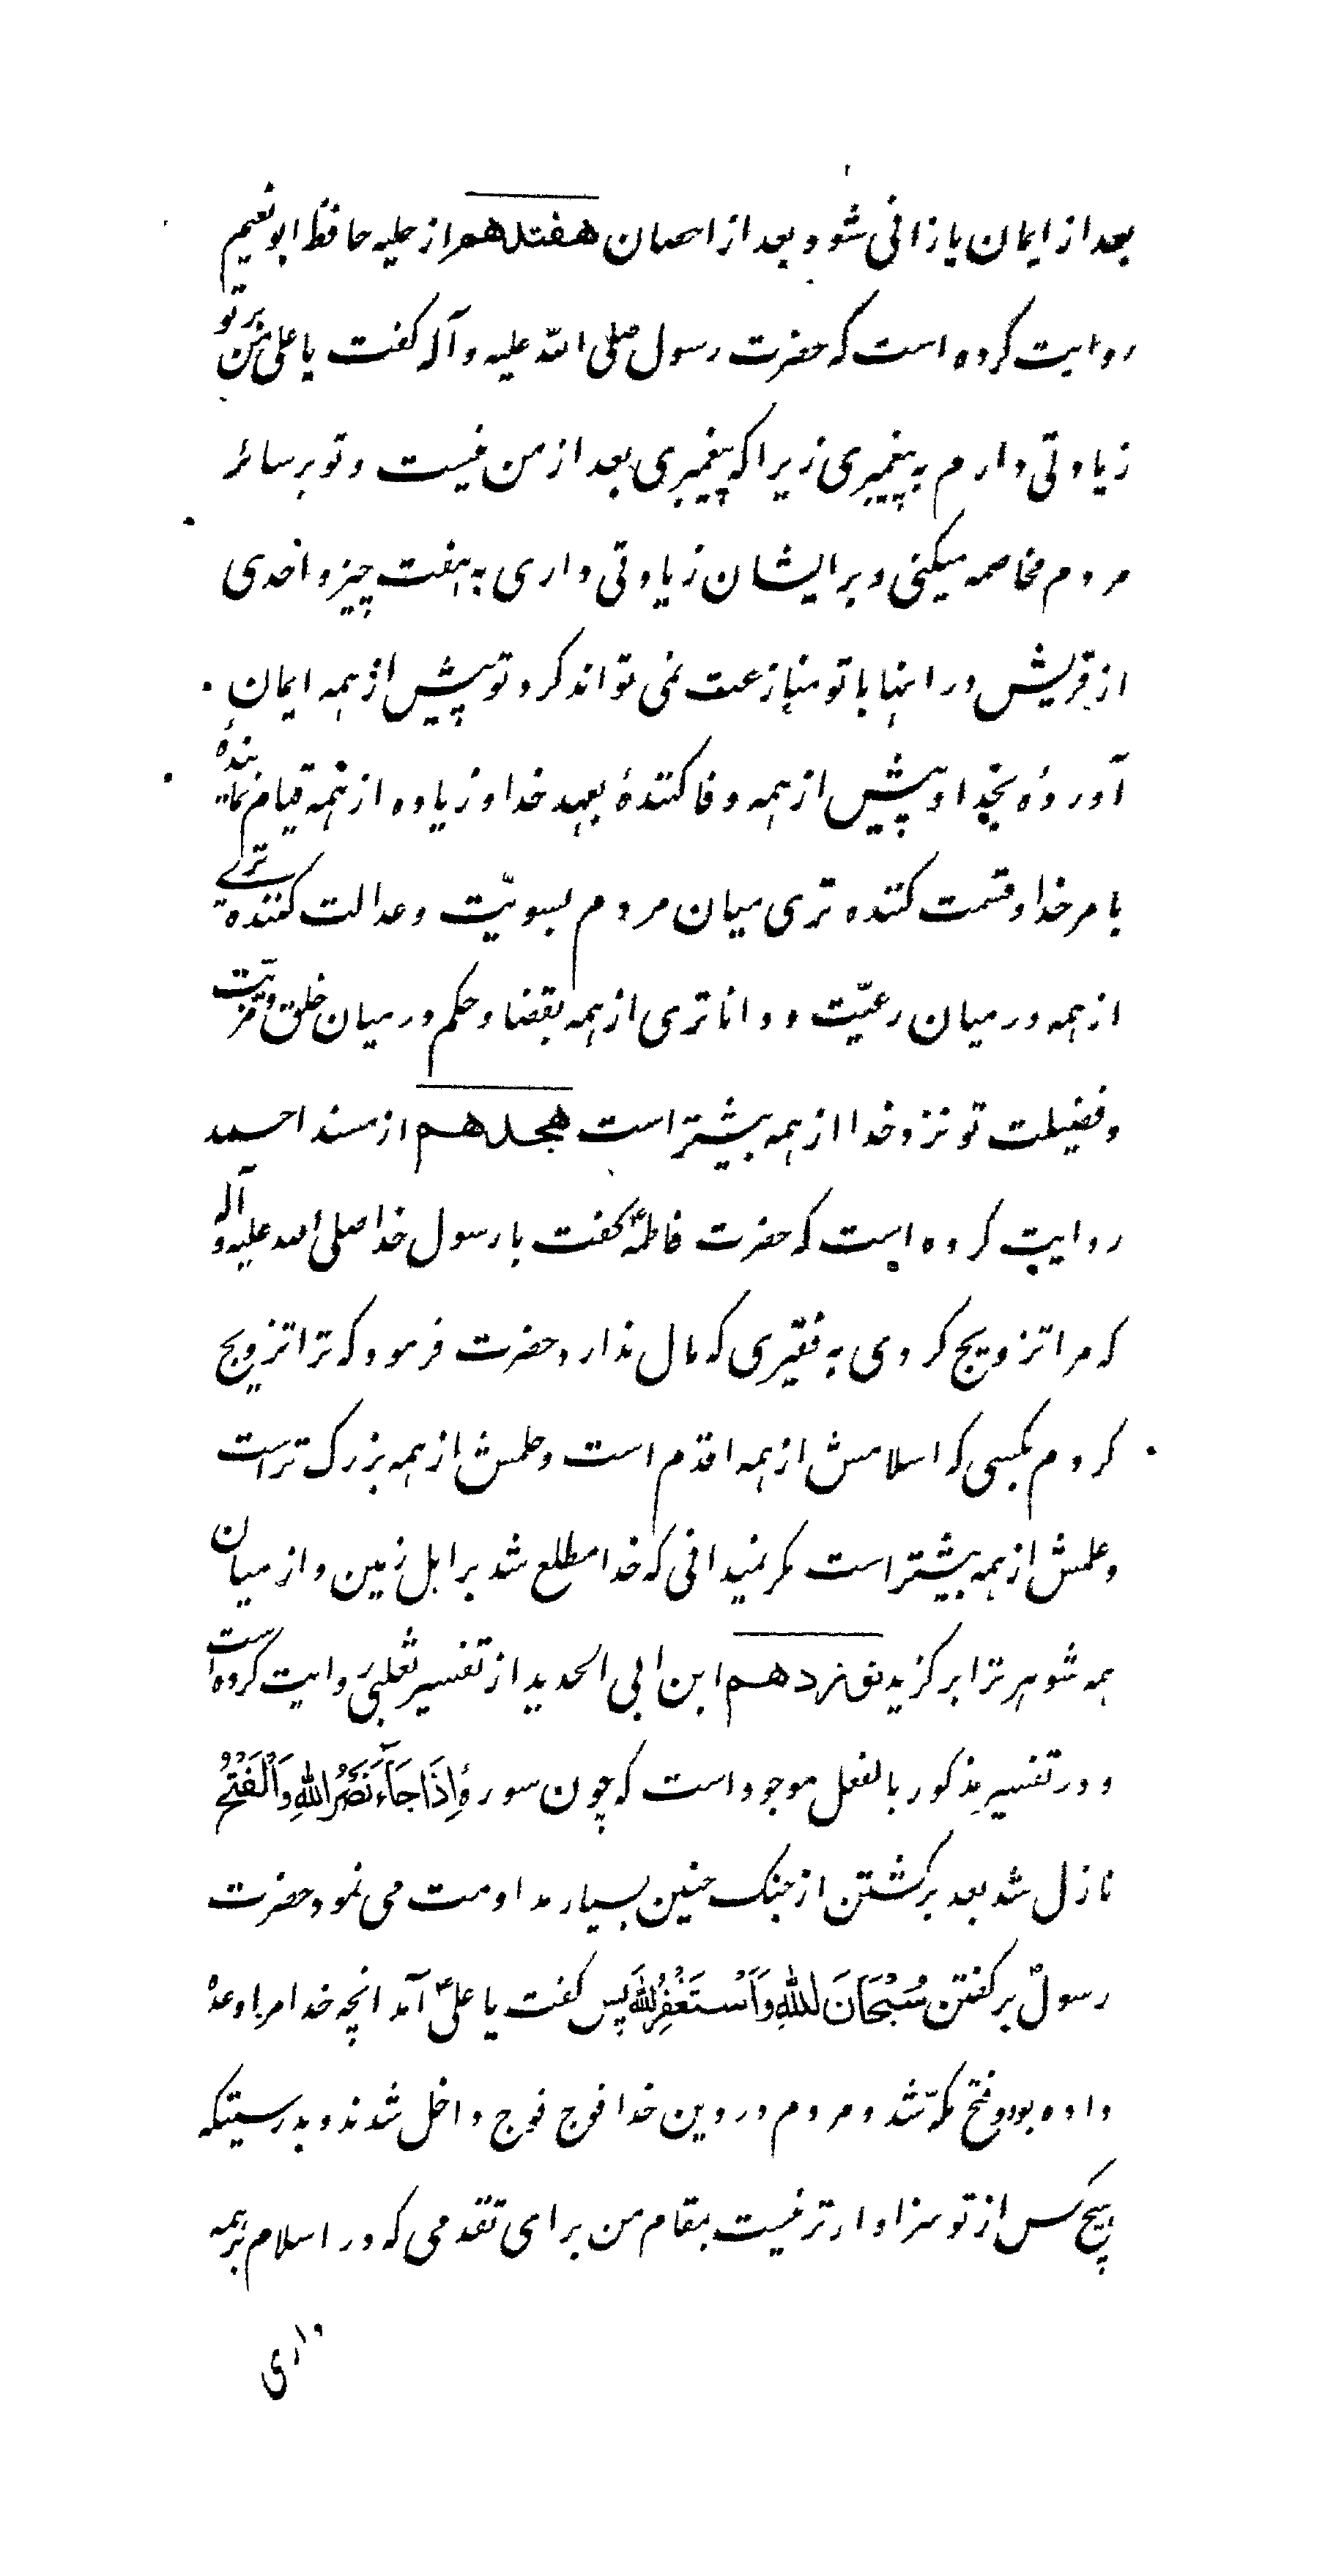 بعد از ایمان یا زانی شود بعد از احصان هفتدهم از حلیه حافظ ابو نعیم
روایت کرده است که حضرت رسول صلی الله علیه و آله کفت یا علی من بر تو
زیادتی دارم به پیغمبری زیرا که پیغمبری بعد از من نیست و تو بر سائر
مردم مخاصمه میکنی و بر ایشان زیادتی داری به هفت چیز و احدی
از قریش در اینها با تو منازعت نمی تواند کرد تو پیش از همه ایمان
آوردهٔ بخدا و پیش از همه وفا کنندهٔ بعهد خدا و زیاده از همه قیام نمایندهٔ
بامر خدا و قسمت کننده تری میان مردم بسویّت و عدالت کننده ترے
از همه در میان رعیّت و داناتری از همه بقضا و حکم در میان خلق و مزیّت
و فضیلت تو نزد خدا از همه بیشتر است هجدهم از مسند احمد
روایت کرده است که حضرت فاطمهٔ کفت با رسول خدا صلی الله علیه و آله
که مرا تزویج کردی به فقیری که مال ندارد حضرت فرمود که ترا تزویج
کردم بکسی که اسلامش از همه اقدم است و حلمش از همه بزرک تر است
و علمش از همه بیشتر است مکر نمیدانی که خدا مطلع شد بر اهل زمین و از میان
همه شوهر ترا برکزید نوزدهم ابن ابی الحدید از تفسیر ثعلبی روایت کرده است
و در تفسیر مذکور بالفعل موجود است که چون سورهٔ إِذَا جَاءَ نَصْرُ اللهِ وَالْفَتْحُ
نازل شد بعد برکشتن از جنک حنین بسیار مداومت می نمود حضرت
رسول بر کفتن سُبْحَانَ للهِ وَاَسْتَغْفِرُ للهَ پس کفت یا علی آمد انچه خدا مرا وعده
داده بود و فتح مکّه شد و مردم در دین خدا فوج فوج داخل شدند و بدرستیکه
هیچ کس از تو سزاوار تر نیست بمقام من برای تقدمی که در اسلام بر همه
داری